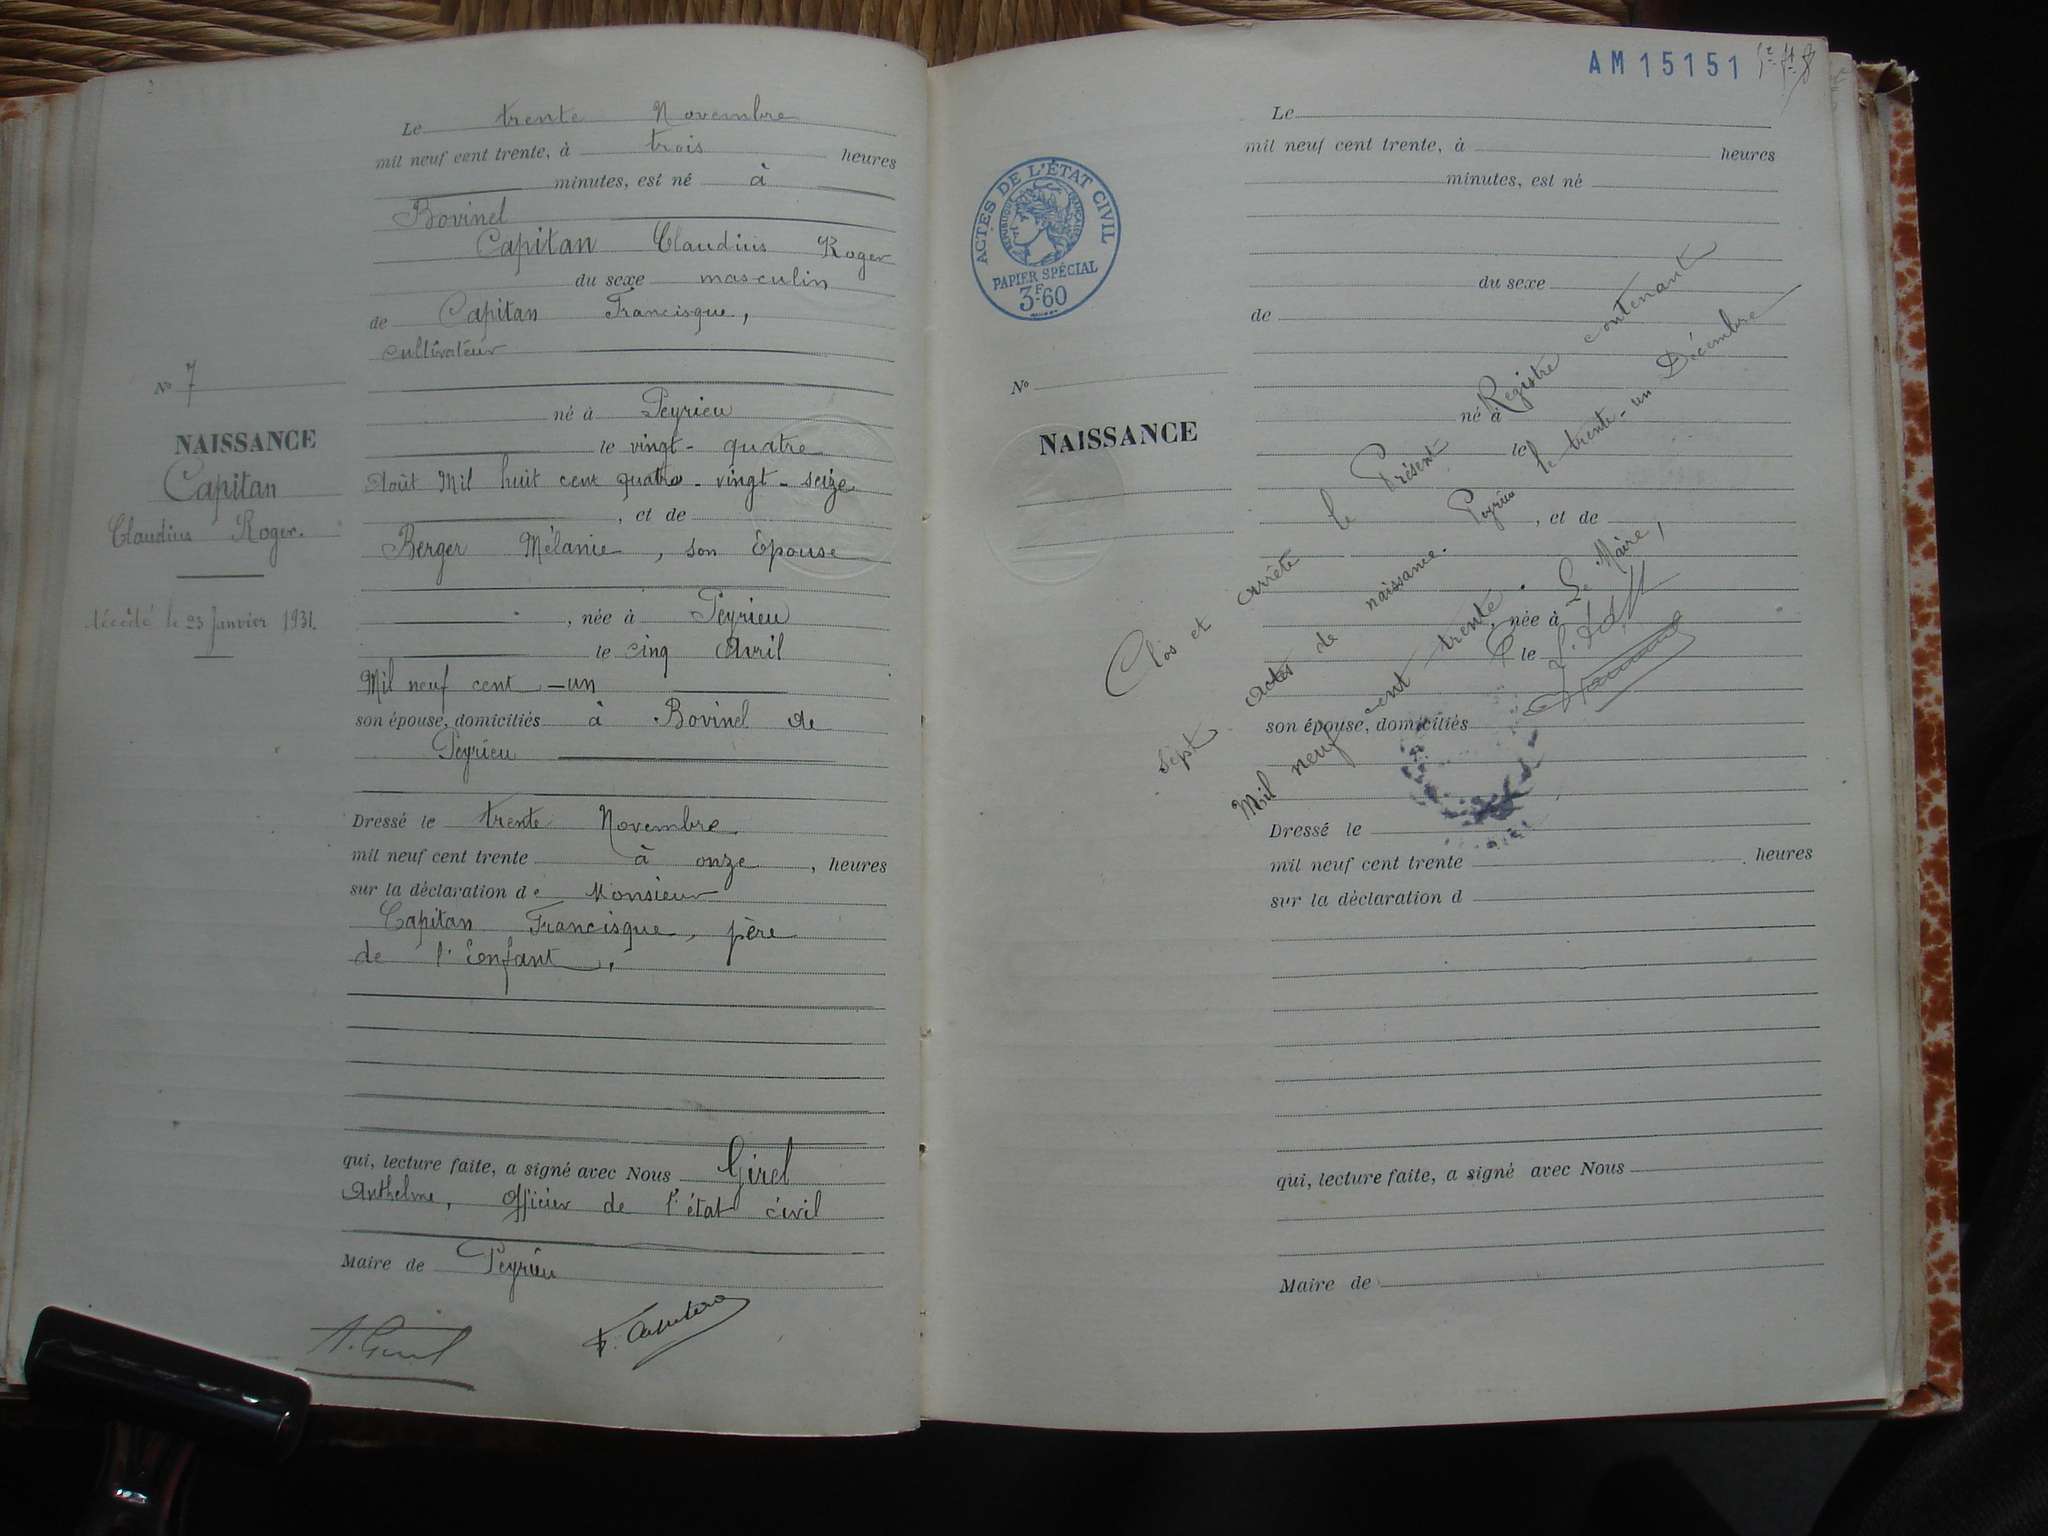 Le trente Novembre
mil neuf cent trente, à trois heures
minutes, est né à
Bovinel
Capitan Claudius Roger
du sexe masculin
de Capitan Francisque,
cultivateur
né à Peyrieu
le vingt-quatre
Août Mil huit cent quatre-vingt-seize
, et de
Berger Mélanie, son Epouse
, née à Peyrieu
le cinq Avril
Mil neuf cent-un
son épouse, domiciliés à Bovinel de
Peyrieu
Dressé le trente Novembre
mil neuf cent trente à onze, heures
sur la déclaration de Monsieur
Capitan Francisque, père
de l'Enfant,
qui, lecture faite, a signé avec Nous Girel
Anthelme, Officier de l'état civil
Maire de Peyrieu
A. Girel
F. Capitan
No 7
NAISSANCE
Capitan
Claudius Roger.
décédé le 23 Janvier 1931.
AM15151
ACTES DE L'ÉTAT CIVIL
RÉPUBLIQUE FRANÇAISE
PAPIER SPÉCIAL
3F.60
No
NAISSANCE
Le
mil neuf cent trente, à heures
minutes, est né
du sexe
de
né à
le
, et de
, née à
le
son épouse, domiciliés
Dressé le
mil neuf cent trente heures
sur la déclaration d
qui, lecture faite, a signé avec Nous
Maire de
Clos et arrêté le Présent Registre contenant
sept actes de naissance. Peyrieu le trente-un Décembre
Mil neuf cent trente.
Le Maire,